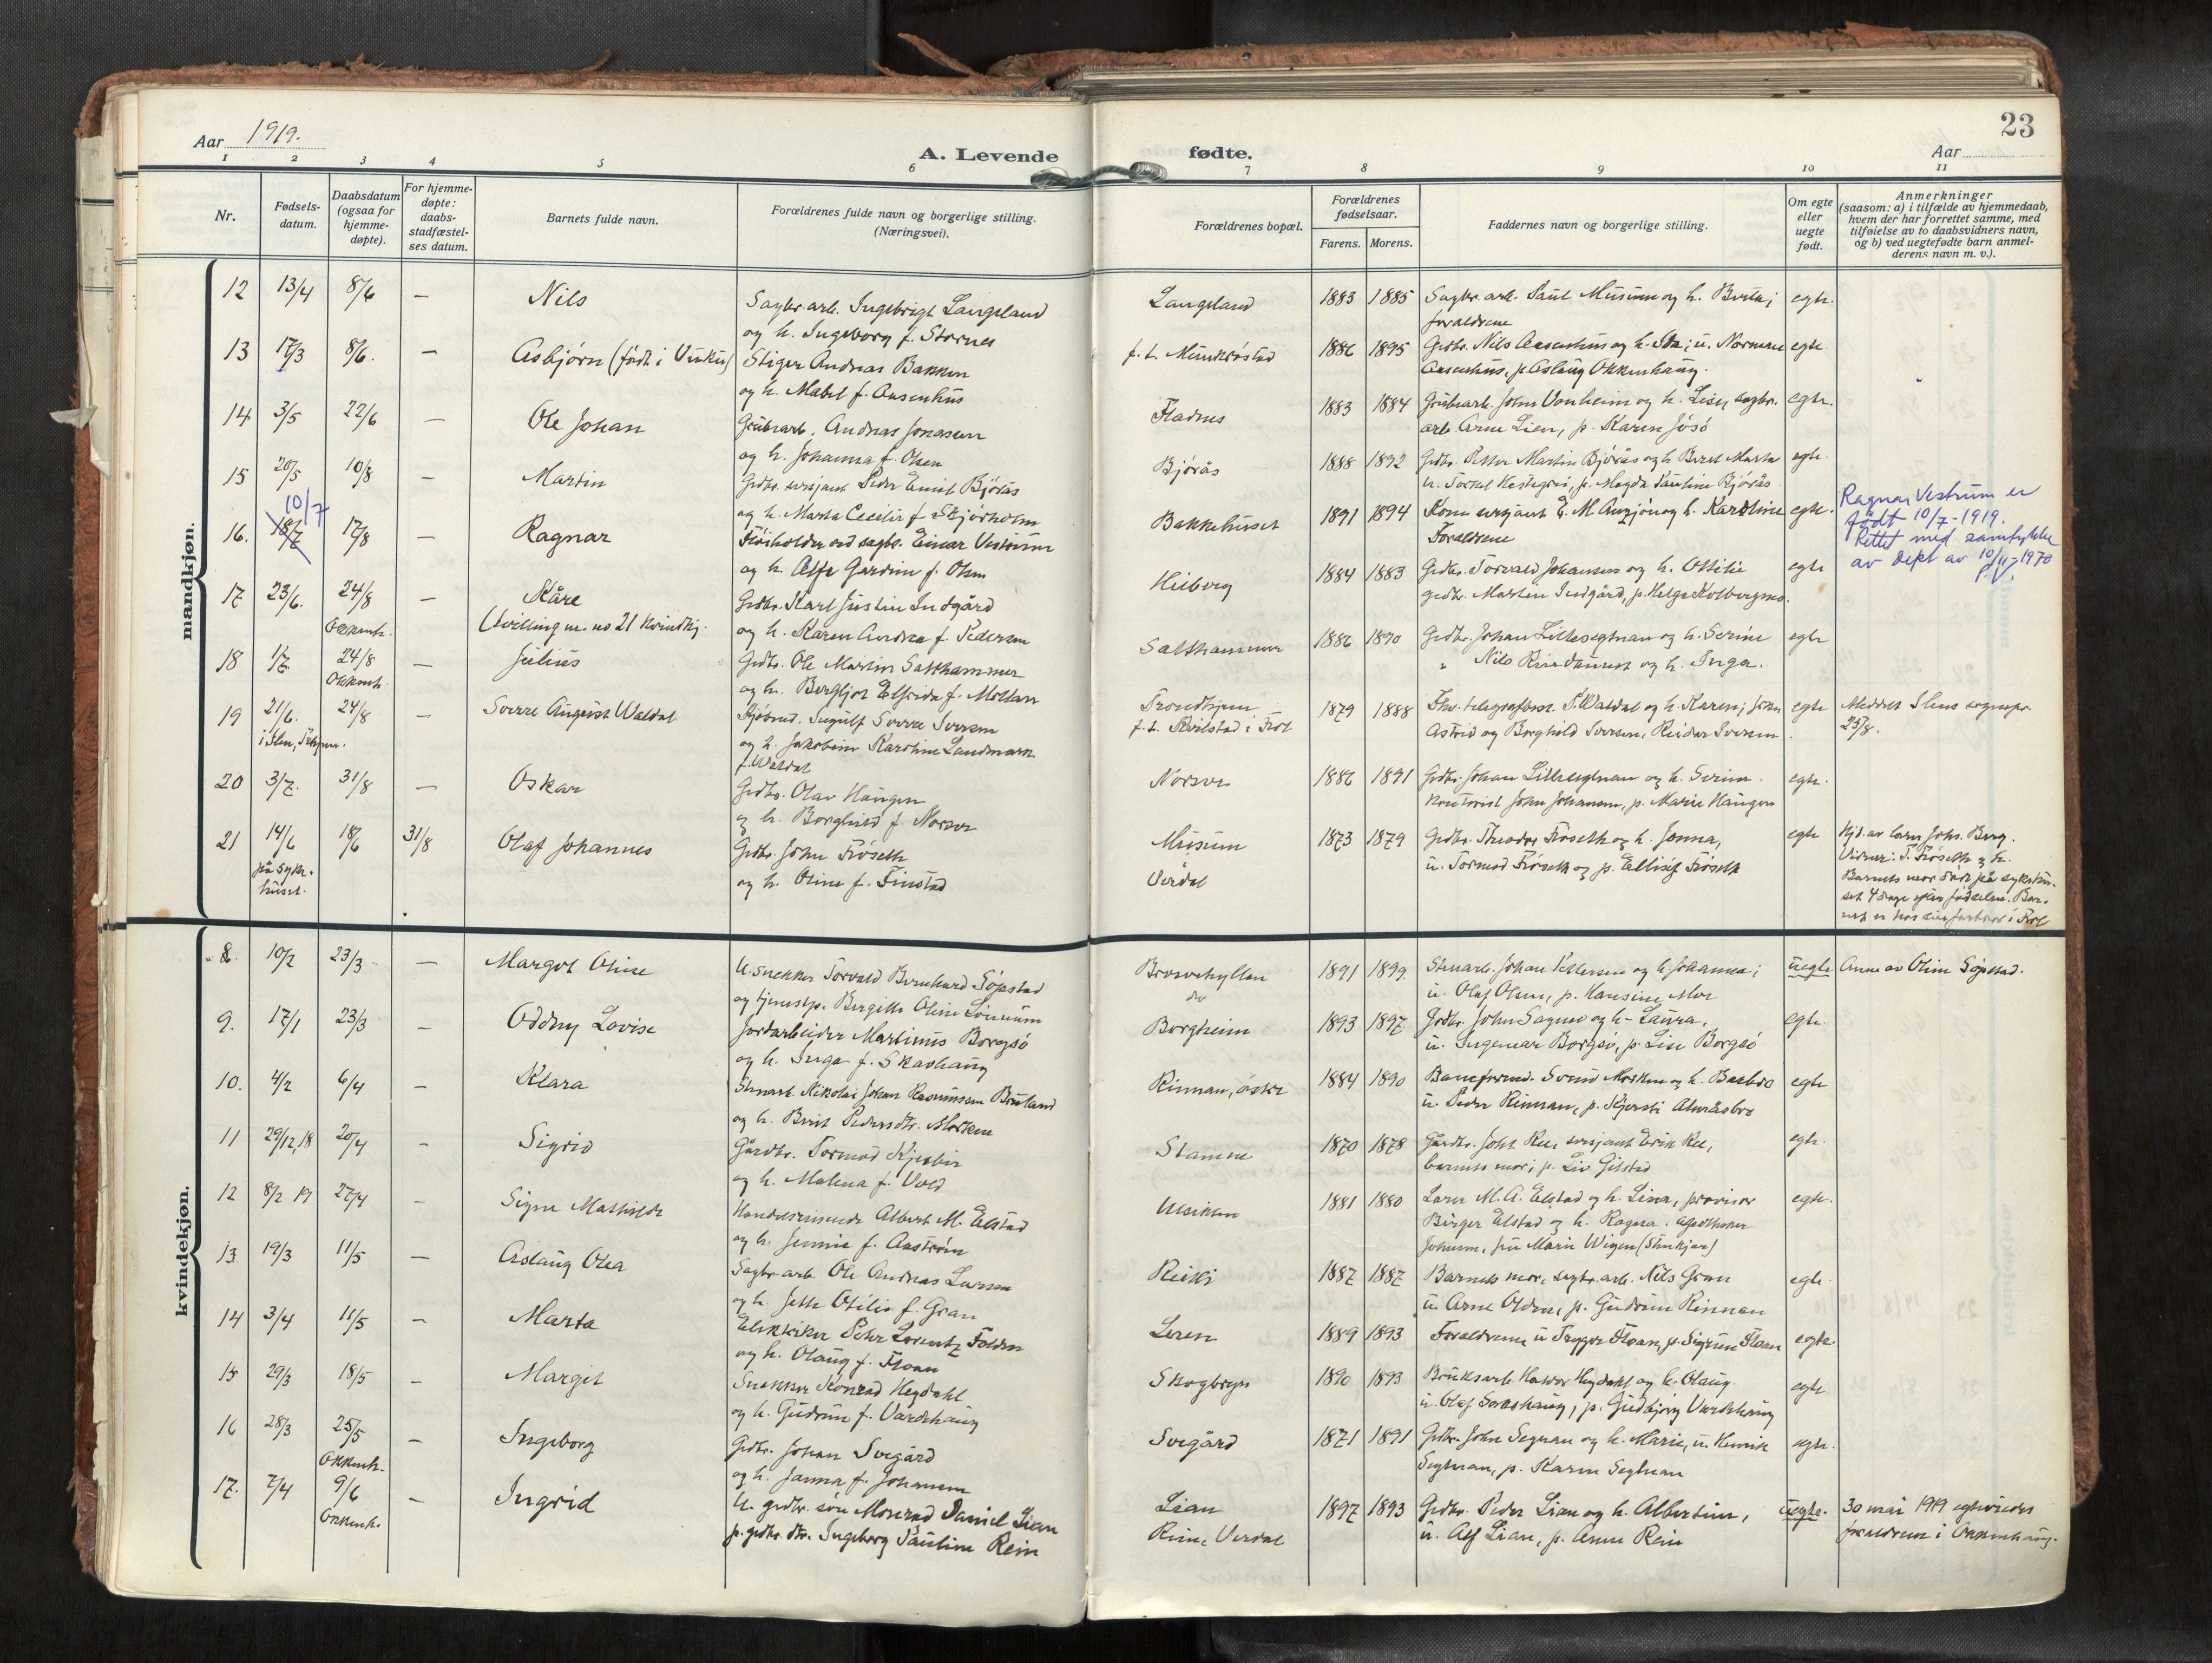 Aar 1919.
A. Levende fødte.
23
Aar
1 2 3 4 5 6 7 8 9 10 11
Nr.
Fødsels-
datum.
Daabsdatum
(ogsaa for
hjemme-
døpte).
For hjemme-
døpte:
daabs-
stadfæstel-
ses datum.
Barnets fulde navn.
Forældrenes fulde navn og borgerlige stilling.
(Næringsvei).
Forældrenes bopæl.
Forældrenes
fødselsaar.
Farens. Morens.
Faddernes navn og borgerlige stilling.
Om egte
eller
uegte
født.
Anmerkninger
(saasom: a) i tilfælde av hjemmedaab,
hvem der har forrettet samme, med
tilføielse av to daabsvidners navn,
og b) ved uegtefødte barn anmel-
derens navn m. v.).
mandkjøn.
12 13/4 8/6 — Nils
Sagbr. arb. Ingebrigt Langeland
og h. Ingeborg f. Stornes
Langeland 1883 1885
Sagbr. arb. Paul Musum og h. Berta;
foreldrene
egte.
13 17/3 8/6. — Asbjørn (født i Vinkus)
Stiger Andreas Bakken
og h. Mabel f. Aasenhus
f. t. 1886 1895
Grdbr. Nils Aasenhus og h. u. Norman
Aasenhus, p. Aslaug Okkenhaug.
egte.
14 3/5 22/6 — Ole Johan
Grubearb. Andreas Jonassen
og h. Johanna f. Olsen
Fladnes 1883 1884
Grubearb. John Vonheim og h. Lisy sagbr.
arb. Arne Lien, p. Karen Jøsø
egte.
15 20/5 10/8 — Martin
Grdbr. sersjant Peder Emil Bjørås
og h. Marta Cecilie f. Skjørholm
Bjørås 1888 1892
Grdbr. Petter Martin Bjørås og h. Beret Marta
u. Torkel Hestegrei, p. Magda Pauline Bjørås
egte.
16. 18/7 10/7 17/8 — Ragnar
ved sagbr. Einar Vestrum
og h. f. Olsen
Bakkehuset 1891 1894
sersjant E. M. og h. Karoline
Foreldrene
egte.
Ragnar Vestrum er
født 10/7-1919.
Rettet med samtykke
av dept av 10/11-1970
17 23/6. 24/8 — Kåre
Okkenh. (tvilling m. no 21 kvindkj.
Grdbr. Karl Justin Indgård
og h. Karen Andrea f. Pedersen
Heiberg 1884 1883
Grdbr. Torvald Johansen og h. Ottilie
grdbr. Marten Indgård, p. Helga Kolbergmo.
egte
18 1/7. 24/8 — Julius
Okkenh.
Grdbr. Ole Martin Salthammer
og h. Bergljot Elfrida f. Mellan
Salthammer 1886 1890
Grdbr. Johan Lillesegtnan og h. Serine
" Nils Rindanset og h. Inga.
egte
19 21/6. 24/8 — Sverre August Waldal
i Ilen, Trhjem.
Ingulf Sverre Iversen
og h. Jakobine Karoline Landmark
f. Waldal
Trondhjem
f. t. Reilstad i Frol
1879 1888
Fhv. telegrafbest. P. Waldal og h. Karen;
Astrid og Borghild Iversen, Reidar Iversen
egte
Meddelt Ilens sognepr.
25/8.
20 3/7. 31/8 — Oskar
Grdbr. Olav Haugen
og h. Borghild f. Norsve
Norsve 1886 1891
Grdbr. Johan Lillesegtnan og h. Serine.
kontorist John Johansen, p. Marie Haugen
egte.
21 14/6 18/6 31/8 Olaf Johannes
på syke-
huset.
Grdbr. John Frøseth
og h. Oline f. Finstad
Musum
Verdal
1873 1879
Grdbr. Theodor Frøseth og h. Jonna,
u. Tormod Frøseth og p. Ellisif Frøseth
egte
Hjd. av lærer Johs. Berg.
Vidner: T. Frøseth og h.
Barnets mor døde på sykehu-
set 4 dage efter fødselen. Bar-
net er hos sin farbror i Frol
kvindekjøn.
8. 10/2 23/3 — Margot Oline
U. snekker Torvald Bernhard Gjøpstad
og tjenestp. Bergitte Oline
do
1891 1899.
Stenarb. Johan Pettersen og h. Johanna;
u. Olaf Olsen, p. Hansine Moe
uegte
Anm. av Oline Gjøpstad.
9. 17/1 23/3 — Oddny Lovise
Jordarbeider Martinus Borgsø
og h. Inga f. Skavhaug
Borgheim 1893 1897
Grdbr. John Sagmo og h. Laura,
u. Ingemar Borgsø, p. Lise Borgsø
egte.
10. 4/2 6/4 — Klara
Stenarb. Nikolai Johan Rasmussen Bruland
og h. Berit Pedersdtr. Morken
Rinnan, østre 1884 1890
Baneformd. Svend Morken og h. Barbro
u. Peder Rinnan, p. Kjersti Almåsbro
egte
11 29/12,18 20/4 — Sigrid
Gårdbr. Tormod Kjesbu
og h. Malena f. Vold
Stamne 1870 1878
Gårdbr. John Ree, sersjant Erik Ree,
barnets mor; p. Liv Gilstad
egte.
12 8/2 19 27/4 — Signe Mathilde
Handelsreisende Albert M. Elstad
og h. Jennie f. Aastrøm
Ulviken 1881 1880
Lærer M. A. Elstad og h. Lina, provisor
Birger Elstad og h. Ragna. apotheker
Johnsen, fru Marie Wigen (Stenkjær)
egte.
13 19/3 11/5 — Aslaug Olea
Sagbr. arb. Ole Andreas Larsen
og h. Jette Otilie f. Gran
Reiki 1887 1887
Barnets mor, sagbr. arb. Nils Gran
u. Arne Olden, p. Gudrun Rinnan
egte
14 3/4 11/5 — Marta
Elektriker Peter Lorentz Folden
og h. Olaug f. Floan
Leren 1889 1893
Foreldrene u. Trygve Floan, p. Sigrun Floan
egte.
15 29/3 18/5 — Margit
Snekker Konrad Heydahl
og h. Gudrun f. Vardehaug
Skogbryn 1890 1893
Bruksarb. Halvor Heydahl og h. Olaug.
u. Olaf, p. Gudbjørg Vardehaug
egte.
16 28/3 25/5 — Ingeborg
Okkenh.
Grdbr. Johan Svegård
og h. Janna f. Johansen
Svegård 1871 1891
Grdbr. John Segtnan og h. Marie, u. Henrik
Segtnan, p. Karen Segtnan
egte.
17. 7/4 9/6 — Ingrid
Okkenh.
U. grdbr. søn Monrad Daniel Lian
p. grdbr. dtr. Ingeborg Pauline Rein
Lian
Rein, Verdal
1897 1893
Grdbr. Peder Lian og h. Albertine,
u. Alf Lian, p. Anna Rein
uegte.
30 mai 1919 egteviedes
foreldrene i Okkenhaug.